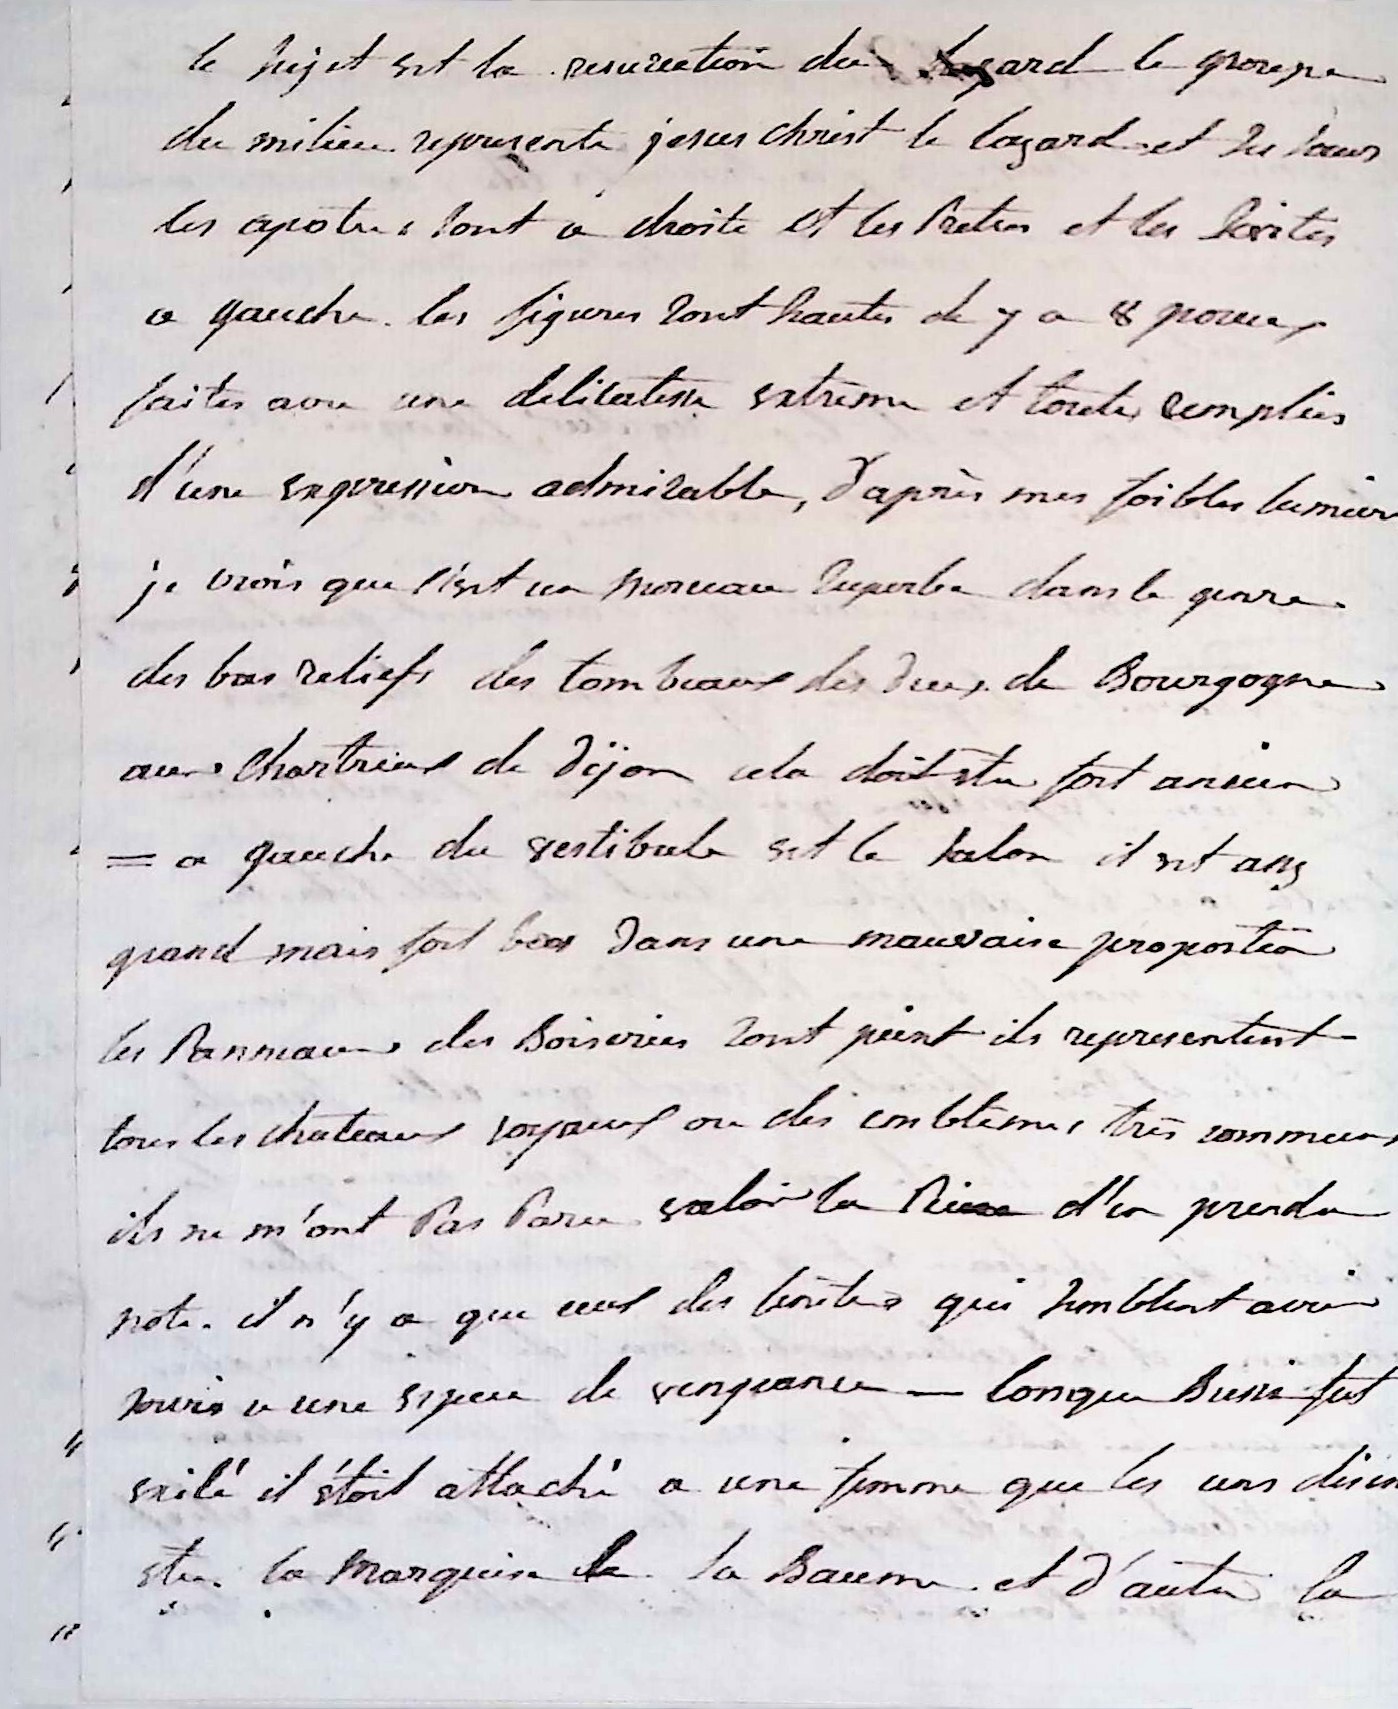 le sujet est la resurection du lazard le groupe
du milieu represente jesus christ le lazard et ses sœurs
les apotres sont a droite et les Pretres et les levites
a gauche. les figures sont hautes de 7 a 8 pouces
faites avec une delicatesse extrême et toutes remplies
d'une expression admirable, d'après mes foibles lumiere
je crois que c'est un morceau superbe dans le genre
des bas reliefs des tombeaux des ducs de Bourgogne
aux chartreux de dijon cela doit etre fort ancien
= a gauche du vestibule est le salon il est assez
grand mais fort bas dans une mauvaise proportion
les Panneaux des Boiseries sont peint ils representent
tous les chateaux royaux ou des emblêmes très communs
ils ne m'ont Pas Paru valoir la Peine d'en prendre
note. il n'y a que ceux des qui semblent avoir
servis a une espece de vengeance — lorsque Bussi fut
exilé il étoit attaché a une femme que les uns disen
etre la Marquise de la Baume et d'autre la